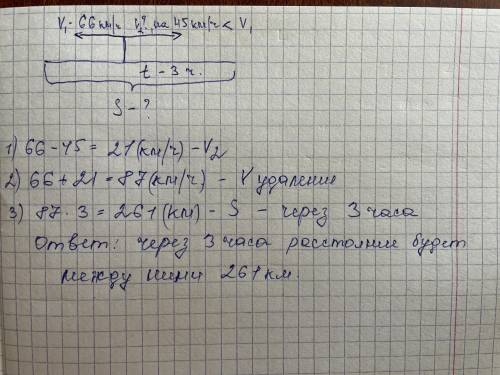 V₁ - 66 км/ч V₂?, на 45 км/ч < V₁
t - 3 ч.
S - ?
1) 66 - 45 = 21 (км/ч) - V₂
2) 66 + 21 = 87 (км/ч) - V удаления
3) 87 · 3 = 261 (км) - S - через 3 часа
Ответ: через 3 часа расстояние будет
между ними 261 км.